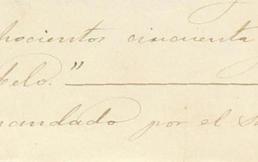 hocientos cincuenta y
belo."
mandado por el S